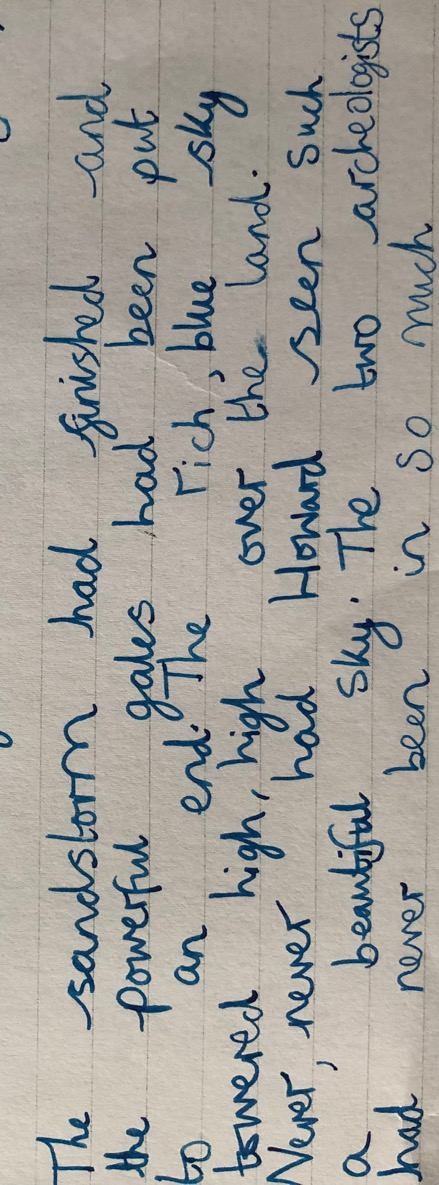 The sandstorm had finished and
the powerful gales had been put
to an end. The rich, blue sky
towered high, high over the land.
Never, never had Howard seen such
a beautiful sky. The two archeologists
had never been in so much